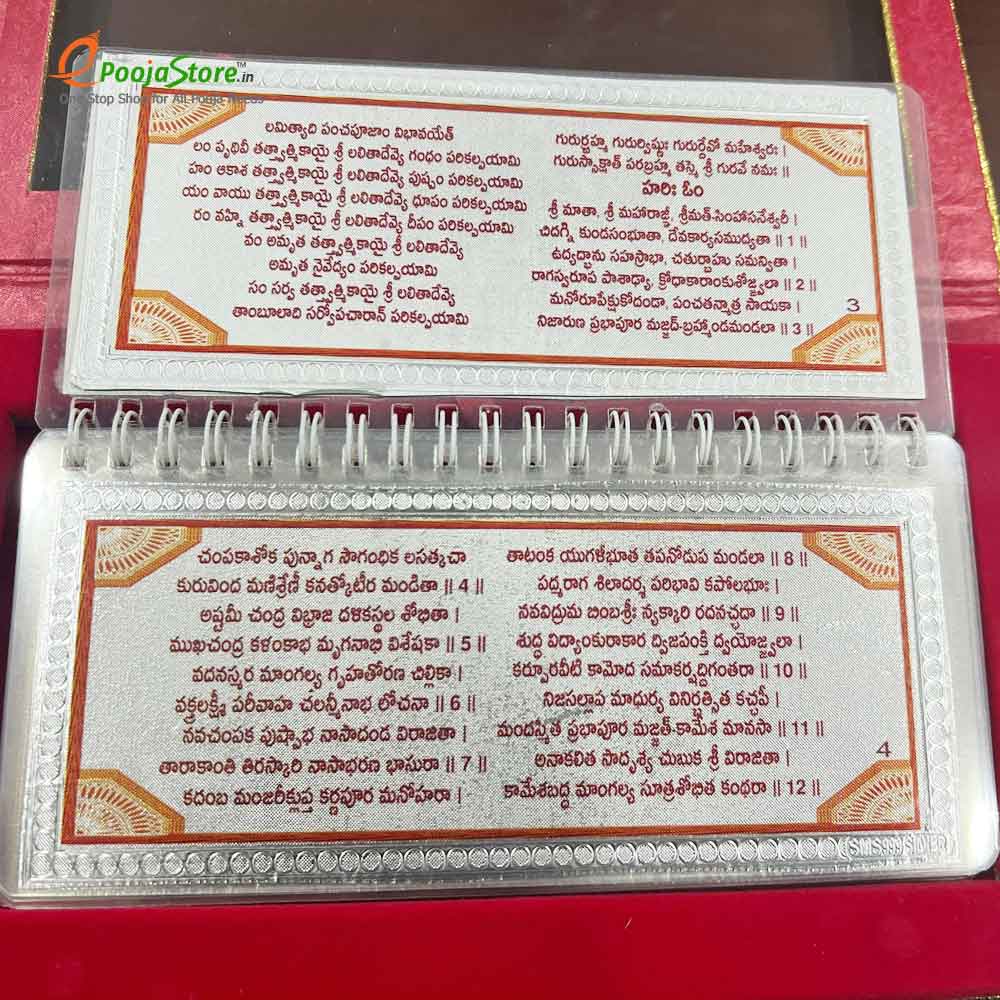 PoojaStore.in
TM
One Stop Shop for All Pooja Needs
లమిత్యాది పంచపూజాం విభావయేత్
లం పృథివీ తత్త్వాత్మికాయై శ్రీ లలితాదేవ్యై గంధం పరికల్పయామి
హం ఆకాశ తత్త్వాత్మికాయై శ్రీ లలితాదేవ్యై పుష్పం పరికల్పయామి
యం వాయు తత్త్వాత్మికాయై శ్రీ లలితాదేవ్యై ధూపం పరికల్పయామి
రం వహ్ని తత్త్వాత్మికాయై శ్రీ లలితాదేవ్యై దీపం పరికల్పయామి
వం అమృత తత్త్వాత్మికాయై శ్రీ లలితాదేవ్యై
అమృత నైవేద్యం పరికల్పయామి
సం సర్వ తత్త్వాత్మికాయై శ్రీ లలితాదేవ్యై
తాంబూలాది సర్వోపచారాన్ పరికల్పయామి
గురుర్బ్రహ్మ గురుర్విష్ణుః గురుర్దేవో మహేశ్వరః |
గురుస్సాక్షాత్ పరబ్రహ్మ తస్మై శ్రీ గురవే నమః ||
హరిః ఓం
శ్రీ మాతా, శ్రీ మహారాజ్ఞీ, శ్రీమత్-సింహాసనేశ్వరీ |
చిదగ్ని కుండసంభూతా, దేవకార్యసముద్యతా || 1 ||
ఉద్యద్భాను సహస్రాభా, చతుర్బాహు సమన్వితా |
రాగస్వరూప పాశాఢ్యా, క్రోధాకారాంకుశోజ్జ్వలా || 2 ||
మనోరూపేక్షుకోదండా, పంచతన్మాత్ర సాయకా |
నిజారుణ ప్రభాపూర మజ్జద్-బ్రహ్మాండమండలా || 3 ||
3
చంపకాశోక పున్నాగ సౌగంధిక లసత్కచా
కురువింద మణిశ్రేణీ కనత్కోటీర మండితా || 4 ||
అష్టమీ చంద్ర విభ్రాజ దళికస్థల శోభితా |
ముఖచంద్ర కళంకాభ మృగనాభి విశేషకా || 5 ||
వదనస్మర మాంగల్య గృహతోరణ చిల్లికా |
వక్త్రలక్ష్మీ పరీవాహ చలన్మీనాభ లోచనా || 6 ||
నవచంపక పుష్పాభ నాసాదండ విరాజితా |
తారాకాంతి తిరస్కారి నాసాభరణ భాసురా || 7 ||
కదంబ మంజరీక్లుప్త కర్ణపూర మనోహరా |
తాటంక యుగళీభూత తపనోడుప మండలా || 8 ||
పద్మరాగ శిలాదర్శ పరిభావి కపోలభూః |
నవవిద్రుమ బింబశ్రీః న్యక్కారి రదనచ్ఛదా || 9 ||
శుద్ధ విద్యాంకురాకార ద్విజపంక్తి ద్వయోజ్జ్వలా |
కర్పూరవీటి కామోద సమాకర్షద్దిగంతరా || 10 ||
నిజసల్లాప మాధుర్య వినిర్భర్త్సిత కచ్ఛపీ |
మందస్మిత ప్రభాపూర మజ్జత్-కామేశ మానసా || 11 ||
అనాకలిత సాదృశ్య చుబుక శ్రీ విరాజితా |
కామేశబద్ధ మాంగల్య సూత్రశోభిత కంధరా || 12 ||
4
999 SILVER